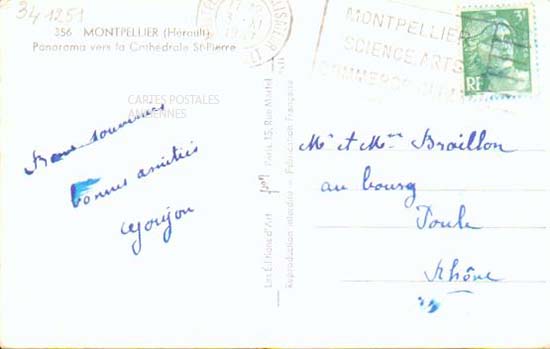 341251
356 MONTPELLIER (Hérault)
Panorama vers la Cathédrale St-Pierre
CARTES POSTALES
ANCIENNES
Bons souvenirs
bonnes amitiés
MONTPELLIER
SCIENCE ARTS
COMMERCE
3F
RF
Mr et Mme Broillon
au bourg
Poule
Rhône
Les Éditions d'Art
Paris, 15, Rue Martel
Reproduction interdite — Fabrication Française